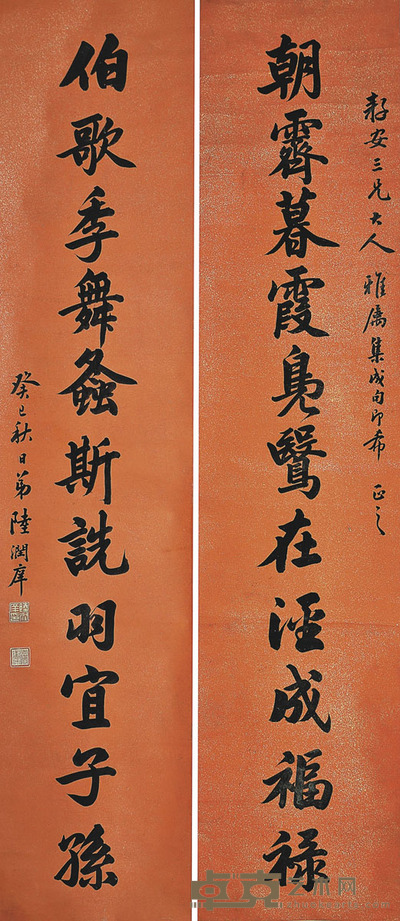 朝霽暮霞鳧鷖在涇成福祿
安三兄大人雅屬集成句即希正之
伯歌季舞螽斯詵羽宜子孫
癸巳秋日弟陸潤庠
卓克艺术网